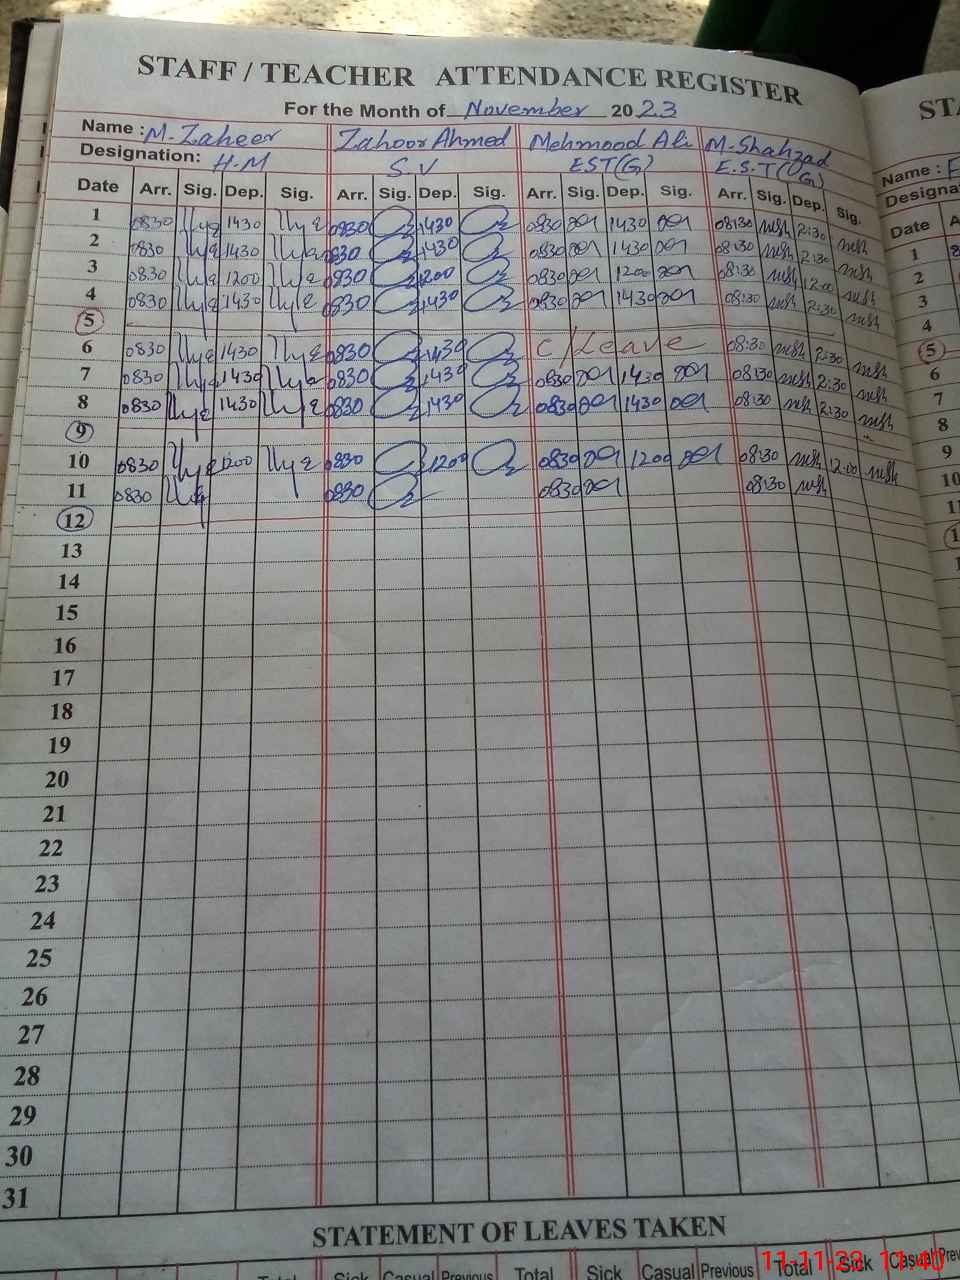 STAFF / TEACHER ATTENDANCE REGISTER
For the Month of November 2023
Name : M. Zaheer Zahoor Ahmed Mehmood Ali M. Shahzad
Designation: H.M S.V EST(G) E.S.T(G)
Date Arr. Sig. Dep. Sig. Arr. Sig. Dep. Sig. Arr. Sig. Dep. Sig. Arr. Sig. Dep. Sig.
1 0830 1430 0830 1430 0830 1430 08:30 2:30
2 0830 1430 0830 1430 0830 1430 08:30 2:30
3 0830 1200 0830 1200 0830 1200 08:30 12:00
4 0830 1430 0830 1430 0830 1430 08:30 2:30
5
6 0830 1430 0830 1430 C/Leave 08:30 2:30
7 0830 1430 0830 1430 0830 1430 08:30 2:30
8 0830 1430 0830 1430 0830 1430 08:30 2:30
9
10 0830 1200 0830 1200 0830 1200 08:30 12:00
11 0830 0830 0830 08:30
12
13
14
15
16
17
18
19
20
21
22
23
24
25
26
27
28
29
30
31
STATEMENT OF LEAVES TAKEN
Total Sick Casual Previous Total Sick Casual Previous Total Sick Casual
11-11-23 11:40
STA
Name :
Designa
Date A
1
2
3
4
5
6
7
8
9
10